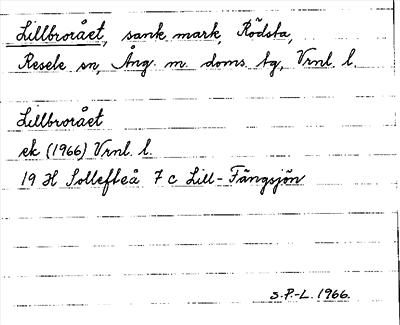 Lillbrorået, sank mark, Rödsta,
Resele sn, Ång. m. doms. tg, Vrnl. l.
Lillbrorået
ek (1966) Vrnl. l.
19 H Sollefteå 7 c Lill-Tängsjön
S.P.-L. 1966.